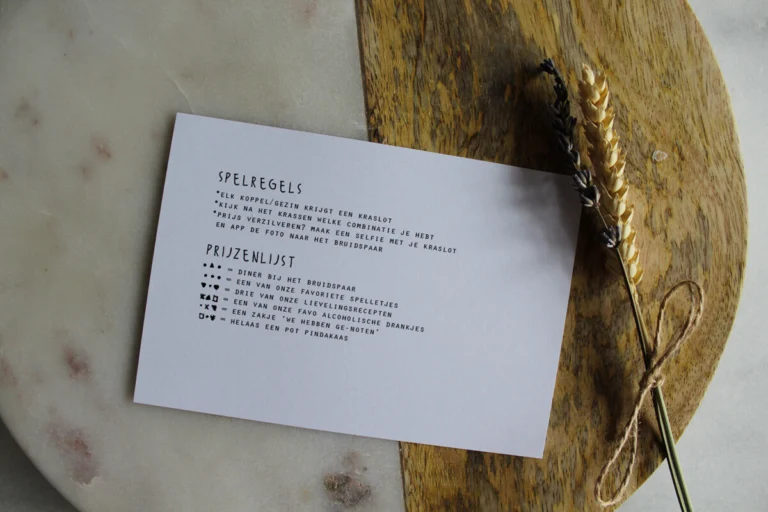 SPELREGELS
*ELK KOPPEL/GEZIN KRIJGT EEN KRASLOT
*KIJK NA HET KRASSEN WELKE COMBINATIE JE HEBT
*PRIJS VERZILVEREN? MAAK EEN SELFIE MET JE KRASLOT
EN APP DE FOTO NAAR HET BRUIDSPAAR
PRIJZENLIJST
= DINER BIJ HET BRUIDSPAAR
= EEN VAN ONZE FAVORIETE SPELLETJES
= DRIE VAN ONZE LIEVELINGSRECEPTEN
= EEN VAN ONZE FAVO ALCOHOLISCHE DRANKJES
= EEN ZAKJE 'WE HEBBEN GE-NOTEN'
= HELAAS EEN POT PINDAKAAS